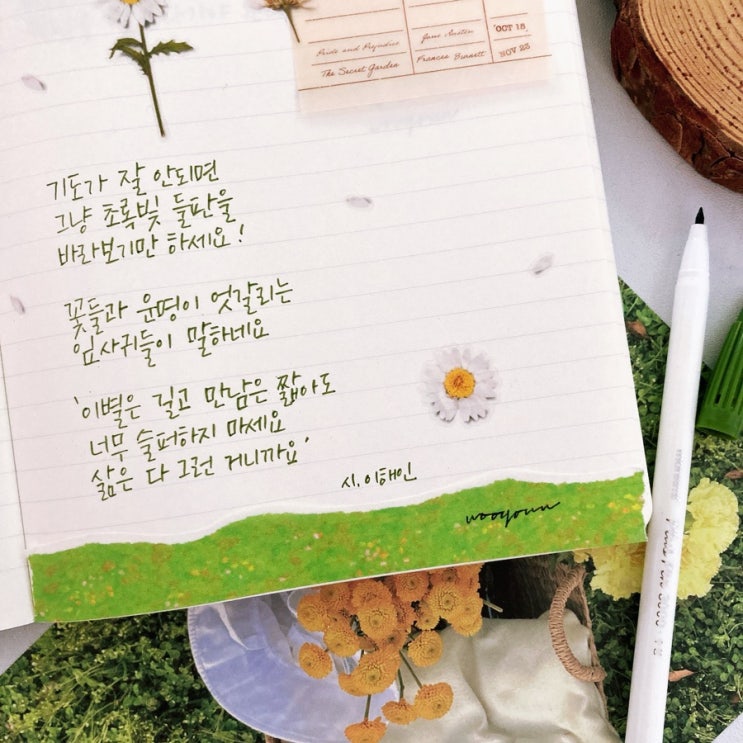 Pride and Prejudice Jane Austen OCT 18
The Secret Garden Frances Burnett NOV 25
기도가 잘 안되면
그냥 초록빛 들판을
바라보기만 하세요!
꽃들과 운명이 엇갈리는
잎사귀들이 말하네요
'이별은 길고 만남은 짧아도
너무 슬퍼하지 마세요
삶은 다 그런 거니까요'
시. 이해인
wooyoun